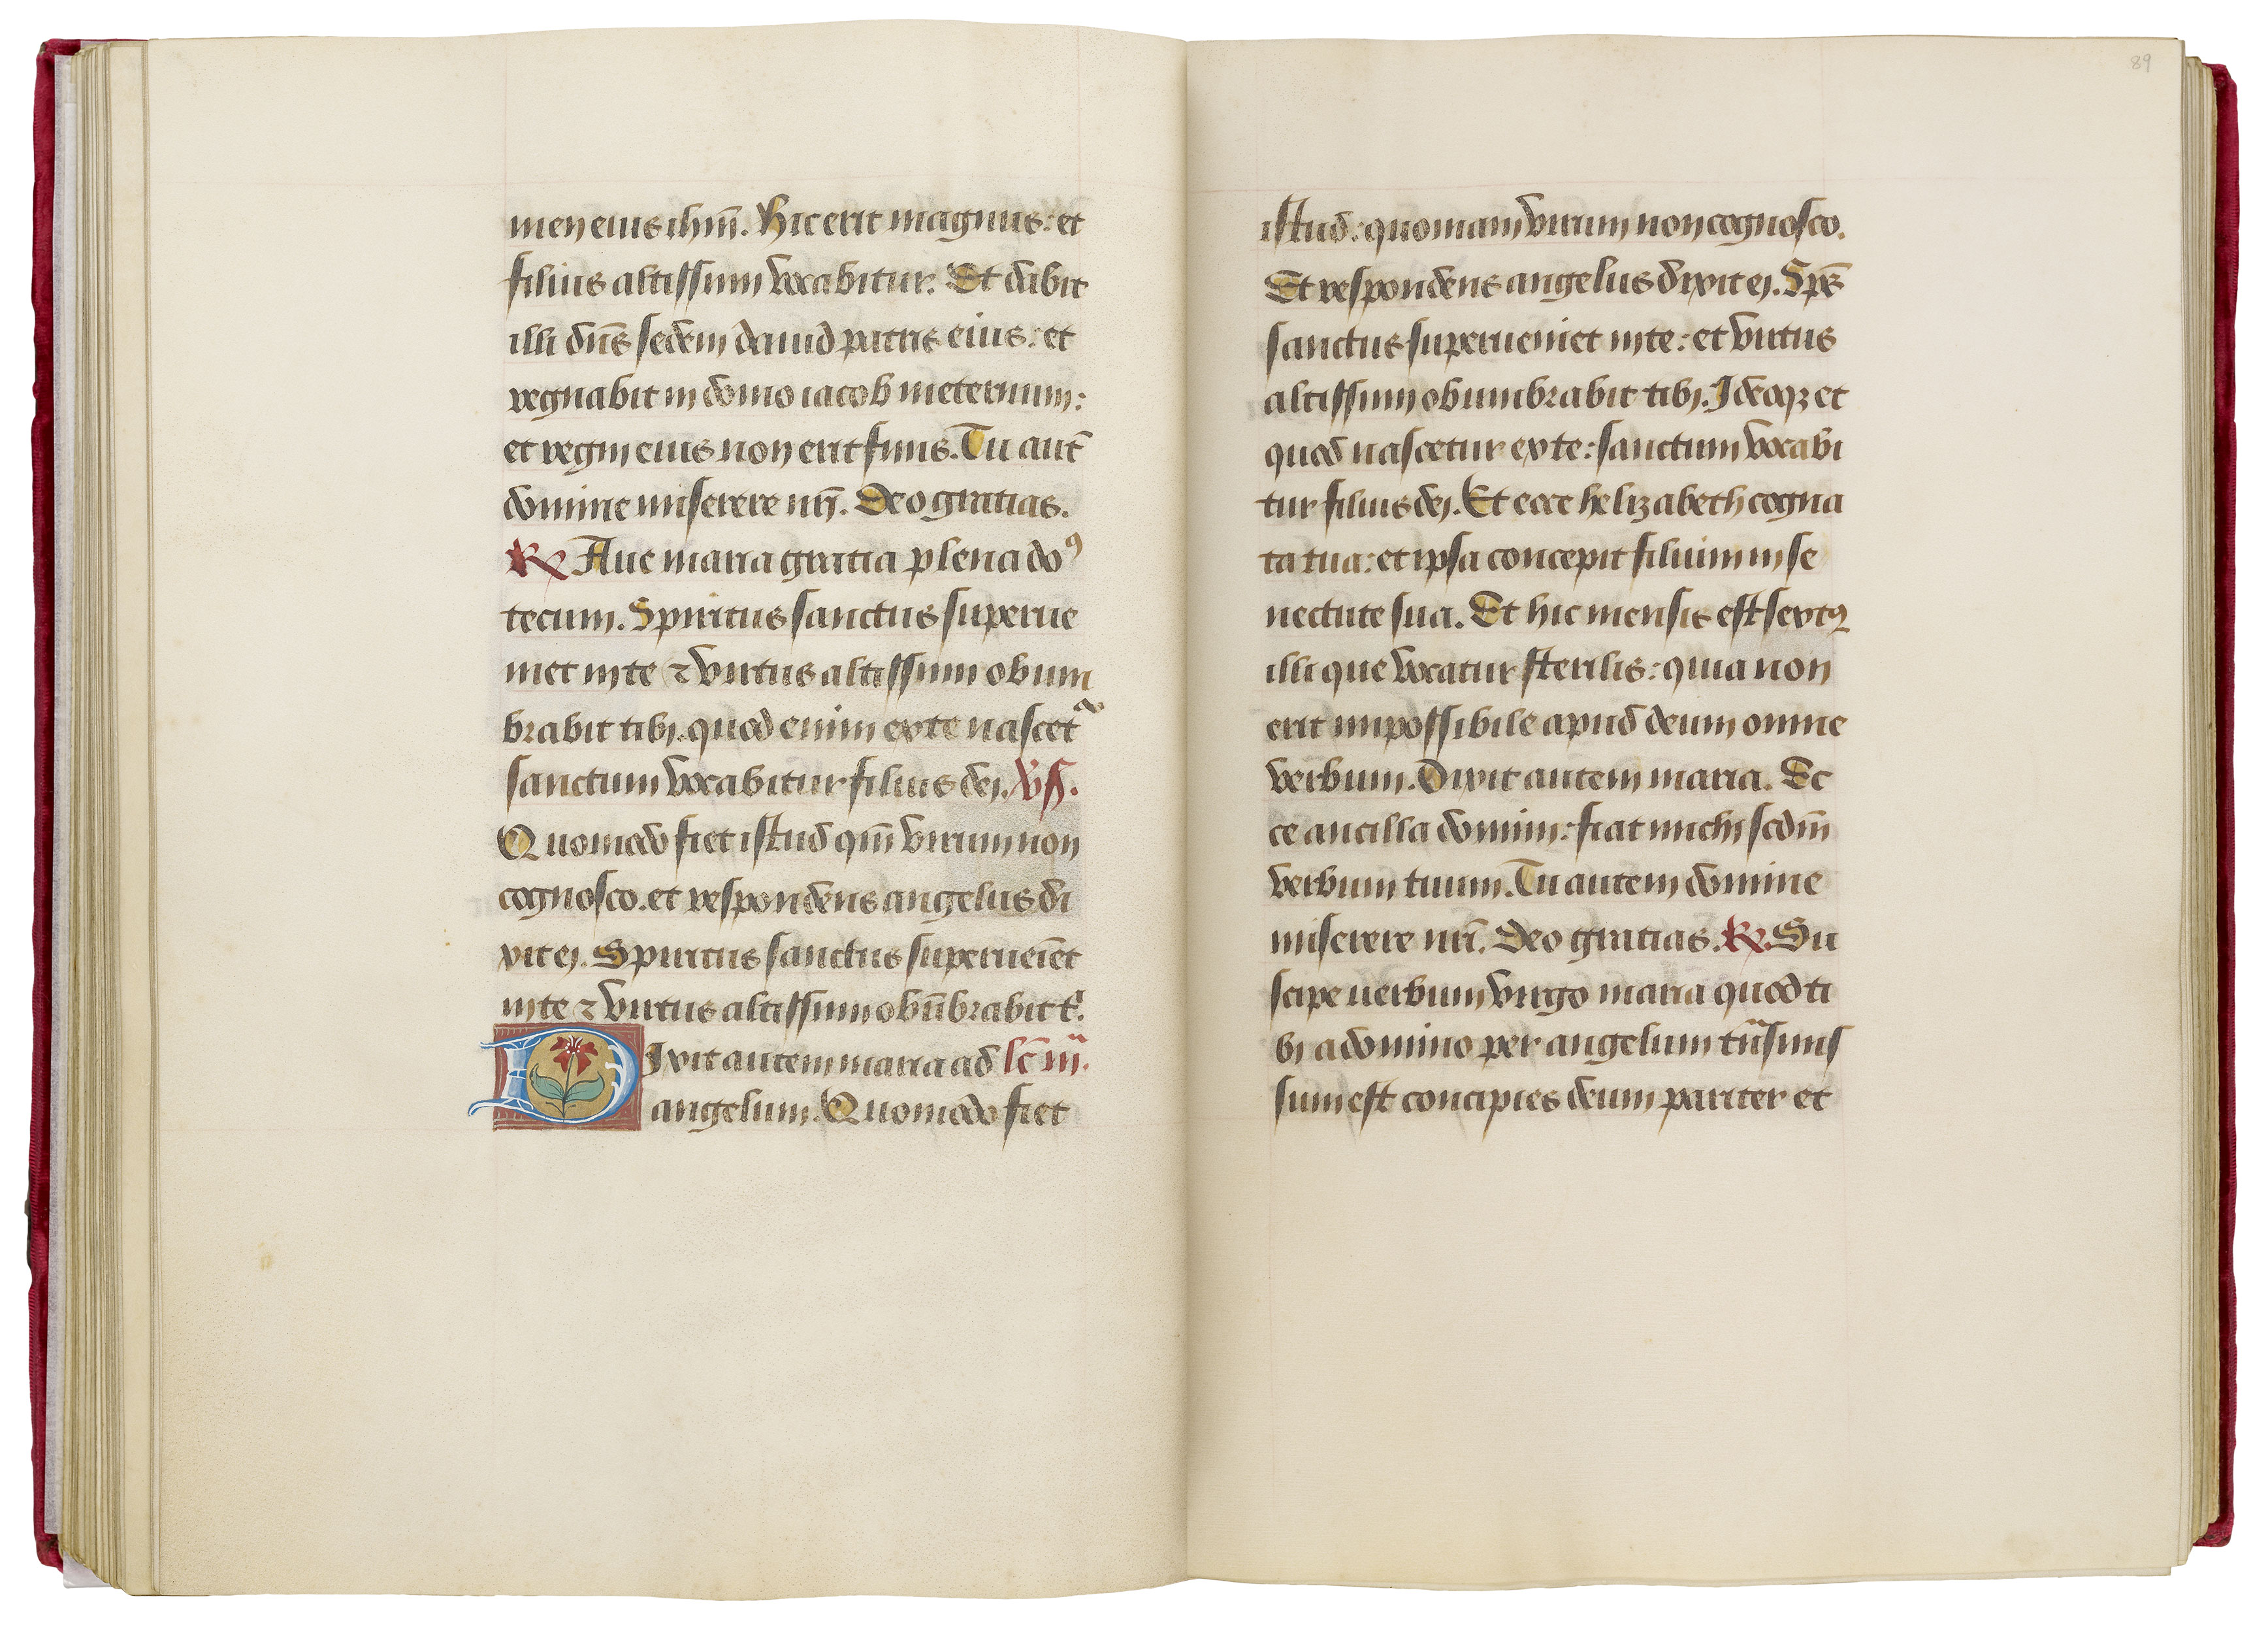 men eius ihm̄. Hic erit magnus: et
filius altissimi vocabitur. Et dabit
illi dn̄s sedem dauid patris eius: et
regnabit in domo iacob in eternum:
et regni eius non erit finis. Tu aut̄
domine miserere nr̄i. Deo gratias.
℟ Aue maria gratia plena doꝰ
tecum. Spiritus sanctus superue
niet in te ⁊ virtus altissimi obum
brabit tibi. quod enim ex te nascetᷓ
sanctum vocabitur filius dei. v̄s.
Quomodo fiet istud qm̄ virum non
cognosco. et respondens angelus di
xit ei. Spiritus sanctus superueīet
in te ⁊ virtus altissimi obūbrabit t'.
Dixit autem maria ad lc̄ iij.
angelum. Quomodo fiet
89
istud: quoniam virum non cognosco.
Et respondens angelus dixit ei. Sp̄s
sanctus superueniet in te: et virtus
altissimi obumbrabit tibi. Ideoqꝫ et
quod nascetur ex te: sanctum vocabi
tur filius dei. Et ecce helizabeth cogna
ta tua: et ipsa concepit filium in se
nectute sua. Et hic mensis est sextꝰ
illi que vocatur sterilis: quia non
erit impossibile apud deum omne
verbum. Dixit autem maria. Ec
ce ancilla domini: fiat michi scdm̄
verbum tuum. Tu autem domine
miserere nr̄i. Deo gratias. ℟. Su
scipe uerbum virgo maria quod ti
bi a domino per angelum tn̄smis
sum est concipies deum pariter et